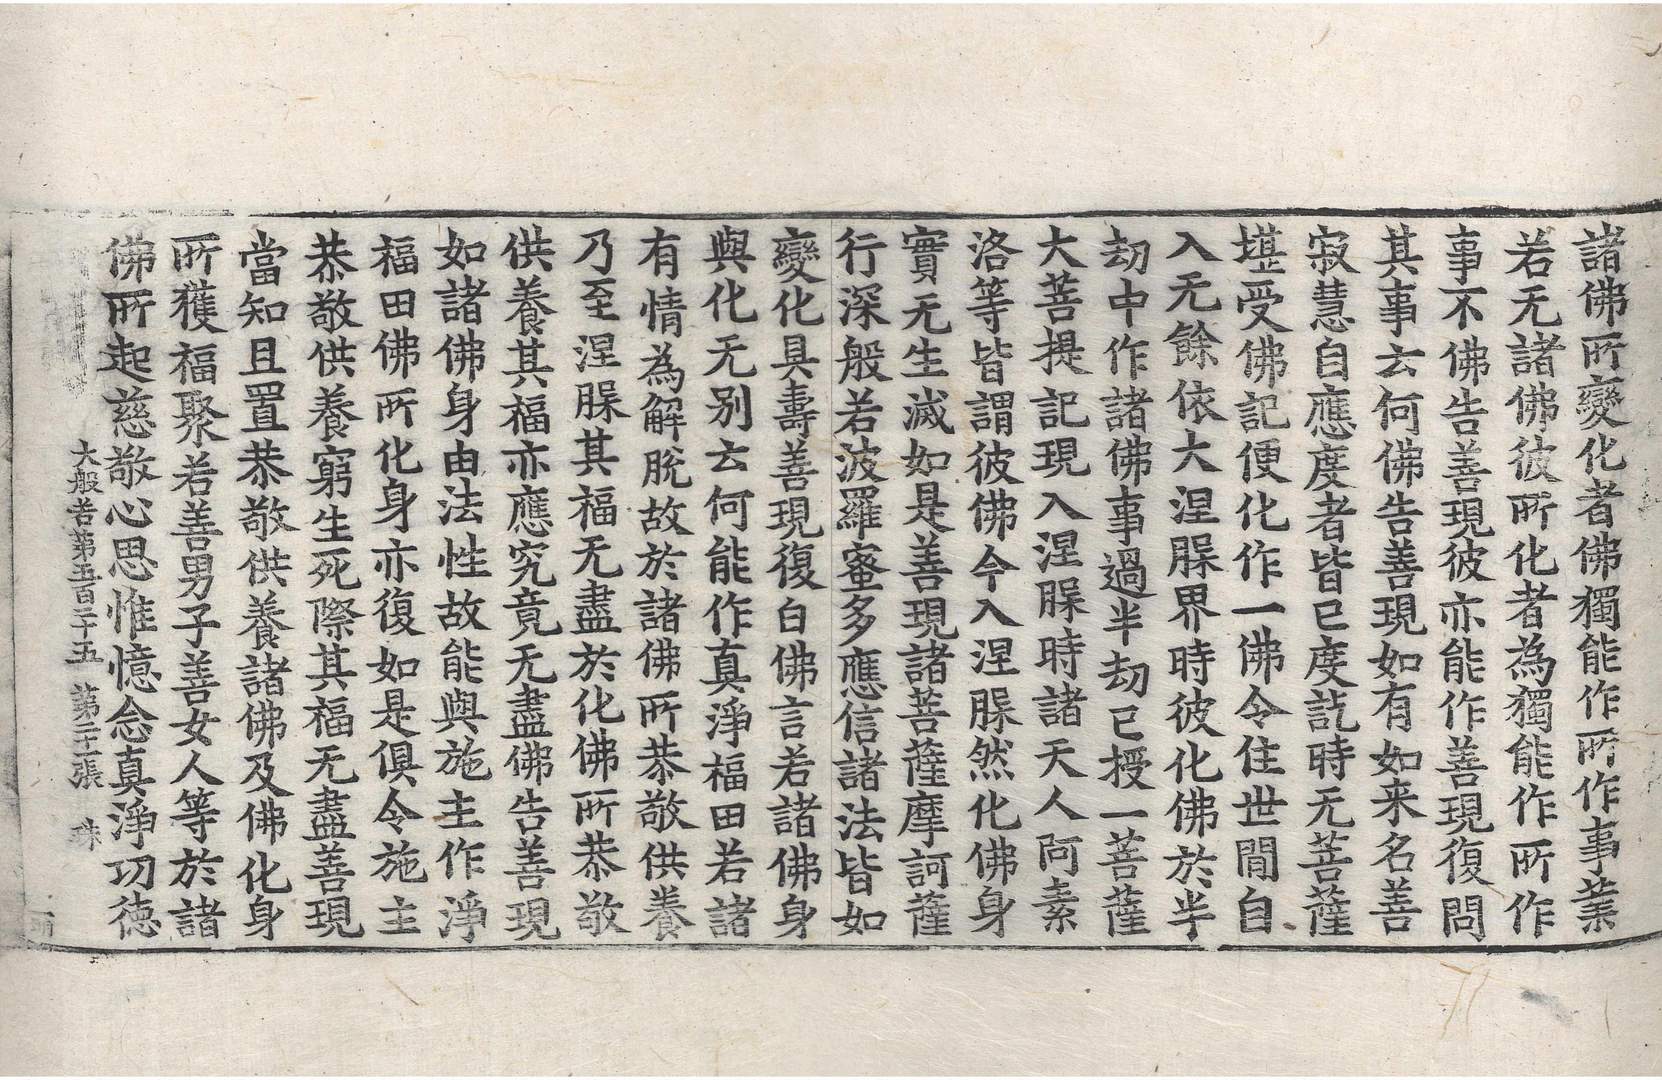 諸佛所變化者佛獨能作所作事業
若无諸佛彼所化者為獨能作所作
事不佛告善現彼亦能作善現復問
其事云何佛告善現如有如来名善
寂慧自應度者皆已度訖時无菩薩
堪受佛記便化作一佛令住世間自
入无餘依大涅槃界時彼化佛於半
劫中作諸佛事過半劫已授一菩薩
大菩提記現入涅槃時諸天人阿素
洛等皆謂彼佛今入涅槃然化佛身
實无生滅如是善現諸菩薩摩訶薩
行深般若波羅蜜多應信諸法皆如
變化具壽善現復白佛言若諸佛身
與化无別云何能作真淨福田若諸
有情為解脫故於諸佛所恭敬供養
乃至涅槃其福无盡於化佛所恭敬
供養其福亦應究竟无盡佛告善現
如諸佛身由法性故能與施主作淨
福田佛所化身亦復如是俱令施主
恭敬供養窮生死際其福无盡善現
當知且置恭敬供養諸佛及佛化身
所獲福聚若善男子善女人等於諸
佛所起慈敬心思惟憶念真淨功德
大般若第五百二十五　第二十一張　珠